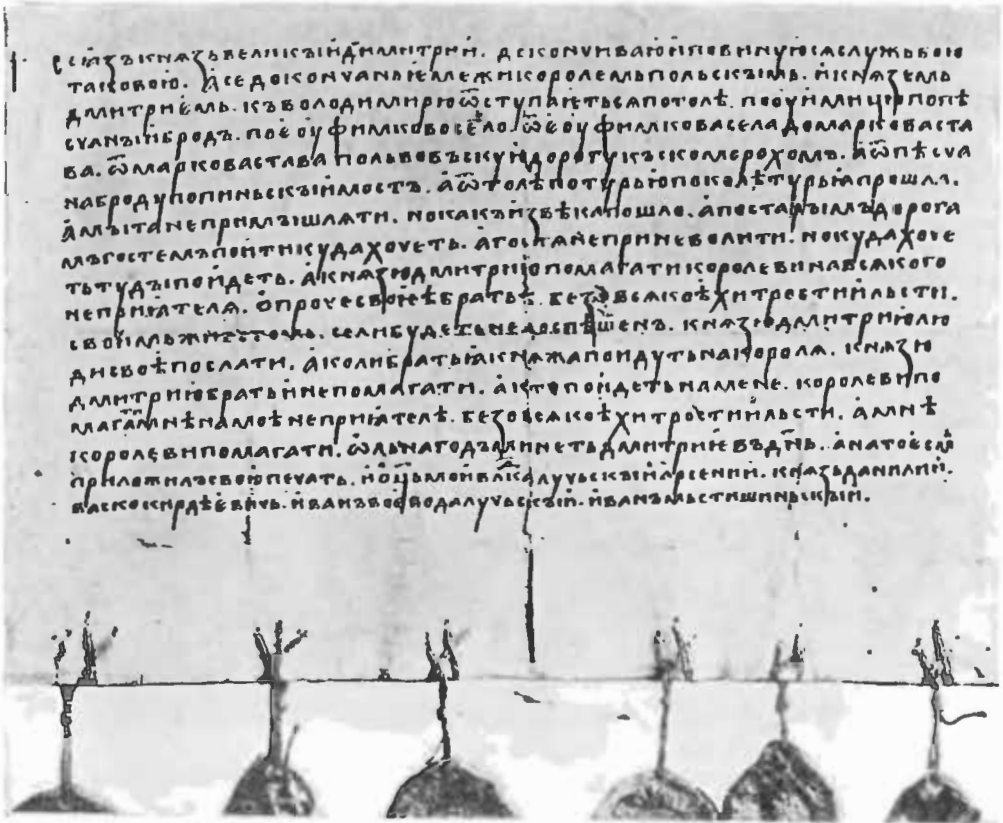 се ꙗзъ кнѧзь велікъıи димитрии. дєконуиваю и повинуюсѧ служьбою
таковою. а се доконуаньѥ межи королемь польскъıмь. и кнѧземь
дмитриѥмь. къ володимирю ѿступаитьсѧ потолѣ. по
суанъıи бродъ. по еѹфимково село. ѿ еѹфимкова села до маркова ста
ва. ѿ маркова става по львовъскуи дорогу къ скомерохомъ. а ѿ пѣсуа
на броду по пиньскъıи мостъ. а ѿтолѣ по турью поколѣ турьꙗ прошла.
а мъıта не примъıшлѧти. но какъ изъ вѣка пошло. а по старъıмъ дорога
мъ гостемъ поити куда хочеть. а гостѧ не приневолити. но куда хоче
ть тудъı поидеть. а кнѧзю дмитрию помагати королеви на всѧкого
неприꙗтелѧ. опроче своѥѣ братьѣ. безо всѧкоѣ хитрости и льсти.
своимь животомь. сели будеть недоспѣшенъ. кнѧзю дмитрию лю
ди своѣ послати. а коли братьꙗ кнѧжа поидуть на королѧ. кнѧзю
дмитрию братьи не помагати. а кто поидеть на мене. королеви по
магати мнѣ на моѣ неприꙗтелѣ. безо всѧкоѣ хитрости и льсти. а мнѣ
королеви помагати. дмитриѥвъ днь. а на то есмь
приложилъ свою печать. и оць мои влка лучьскъıи арсении. кнѧзь данилии.
васко кирдѣевичь. иванъ воѥвода лучьскъıи. иванъ мьстишиньскъıи.